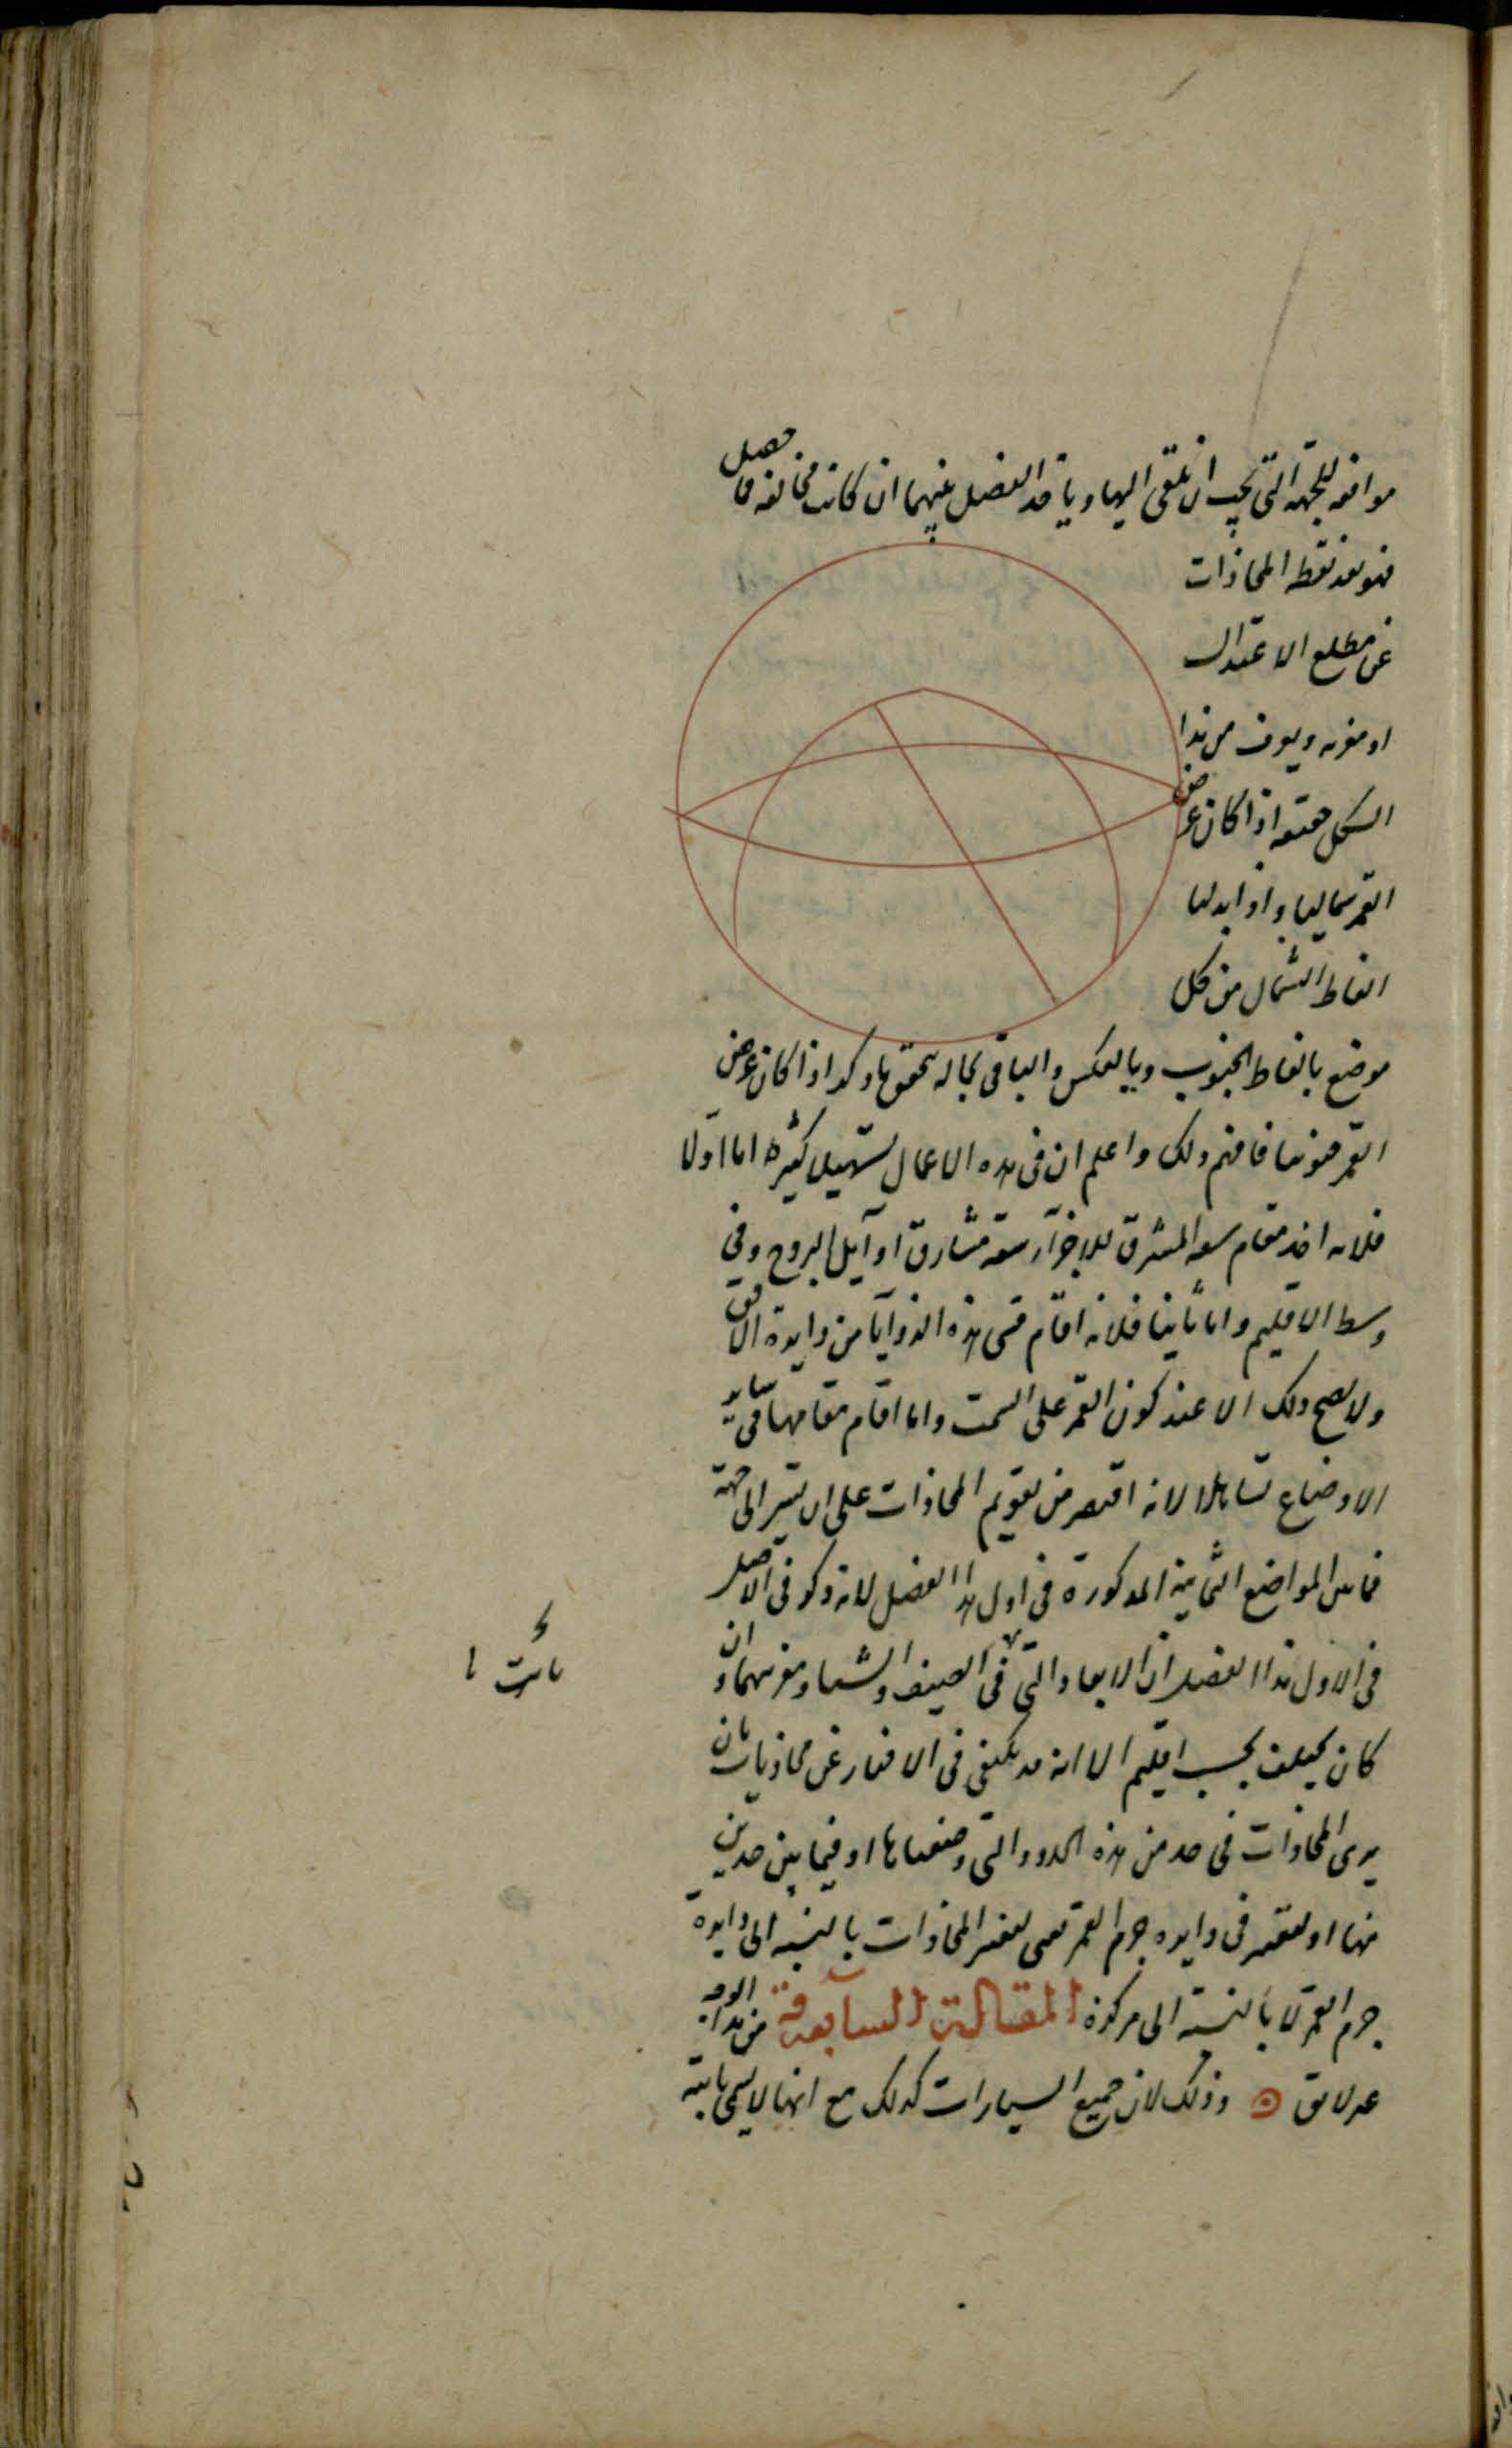 موافقه للجهة التي يجب ان يلتقى اليها وياخذ الفضل بينهما ان كانت مخالفه فما حصل
فهو بعد نقطه المحاذات
عن مطلع الاعتدال
او مغربه ويعرف من هذا
الشكل حقيقه اذا كان عرض
القمر شماليا واذا بدلنا
الفاظ الشمال من كل
موضع بالفاظ الجنوب وبالعكس والباقي بحاله تحقق هذا وكذا اذا كان عرض
القمر جنوبيا فافهم ذلك واعلم ان في هذه الاعمال تسهيل كثيرة اما اولا
فلانه اخذ مقام سعه المشرق للاجزآء سعة مشارق اوآيل البروج وفي
وسط الاقليم واما ثانيا فلانه اقام قسى هذه الزوآيا من دايرة الافق
ولا يصح ذلك الا عند كون القمر على السمت واما اقام مقامها في ساير
الاوضاع تساهلا لانه اقتصر من تقويم المحاذات على ان يشير الى جهة
فما بين المواضع الثمانية المذكورة في اول هذا الفصل لانه ذكر في الاصل
في الاول هذا الفصل ان الابعاد التى في الصيف والشتا ومغربهما وان
كان يختلف بحسب اقليم الا انه قد يكتفى في الاخبار عن محاذياتها بان
يرى المحاذات في حد من هذه الحدود التى وضعناها او فيما بين حدين
منها او يعتبر في دايره جرم القمر يعنى يعتبر المحاذات بالنسبه الى دايرة
جرم القمر لا بالنسبة الى مركزه المقالة السابعة من هذا الوجه
عد لايق ۞ وذلك لان جميع السيارات كذلك مع انها لا يسمى ثابته